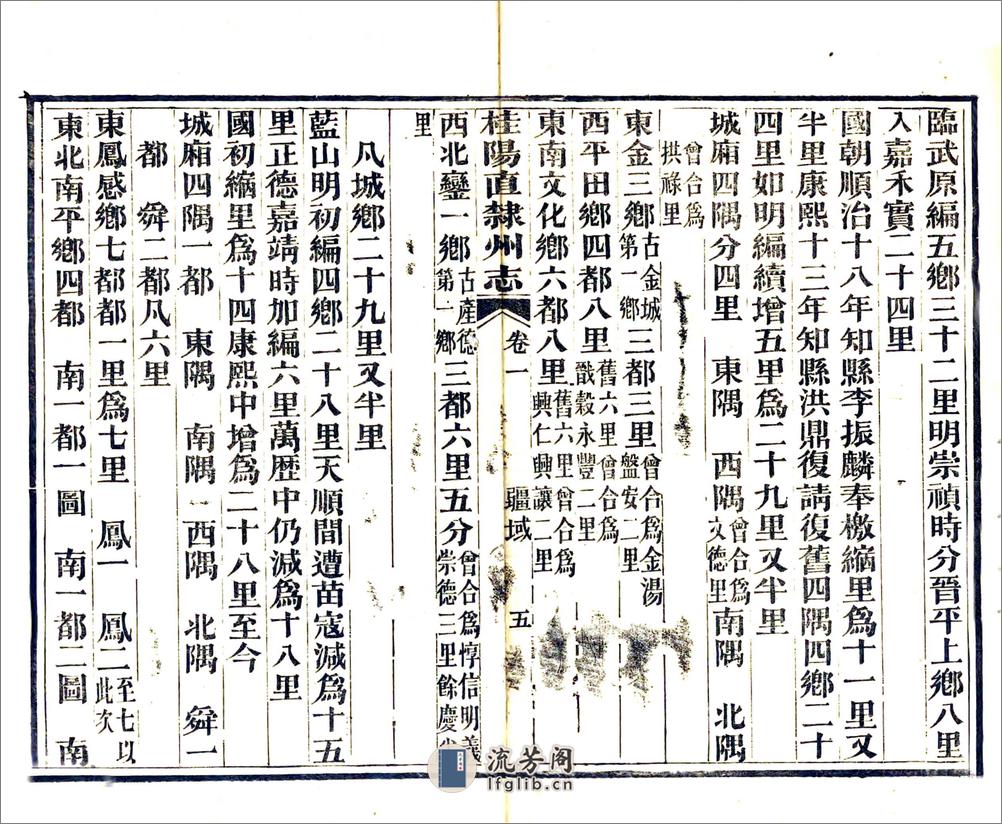 臨武原編五鄉三十二里明崇禎時分晉平上鄉八里
入嘉禾實二十四里
國朝順治十八年知縣李振麟奉檄縮里爲十一里又
半里康熙十三年知縣洪鼎復請復舊四隅四鄉二十
四里如明編續增五里爲二十九里又半里
城廂四隅分四里　東隅　西隅曾合爲文德里南隅　北隅
曾合爲拱祿里
東金三鄉古金城第一鄉三都三里曾合爲金湯盤安二里
西平田鄉四都八里舊六里曾合爲戩穀永豐二里
東南文化鄉六都八里舊六里曾合爲興仁興讓二里
桂陽直隸州志　卷一　疆域　五
西北鑾一鄉古產德第一鄉三都六里五分曾合爲惇信明義崇德三里餘慶半
里
凡城鄉二十九里又半里
藍山明初編四鄉二十八里天順間遭苗寇減爲十五
里正德嘉靖時加編六里萬歷中仍減爲十八里
國初縮里爲十四康熙中增爲二十八里至今
城廂四隅一都　東隅　南隅　西隅　北隅　舜一
都　舜二都凡六里
東鳳感鄉七都都一里爲七里　鳳一　鳳二至七以此次
東北南平鄉四都　南一都一圖　南一都二圖　南
流芳阁
lfglib.cn